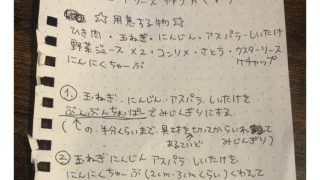 ソース 作り方
☆用意する物☆
ひき肉・玉ねぎ・にんじん・アスパラ・しいたけ
野菜ジュース×2・コンソメ・さとう・ウスターソース
にんにくちゅーぶ ケチャップ
① 玉ねぎ・にんじん・アスパラ・しいたけを
ぶんぶんちょぱーでみじんぎりにする
(↑の半分くらいまで、具材を切ってからいれて
あるていど みじんぎり)
② 玉ねぎ・にんじん アスパラ・しいたけ・
にんにくちゅーぶ(2cm・3cmくらい)くわえて